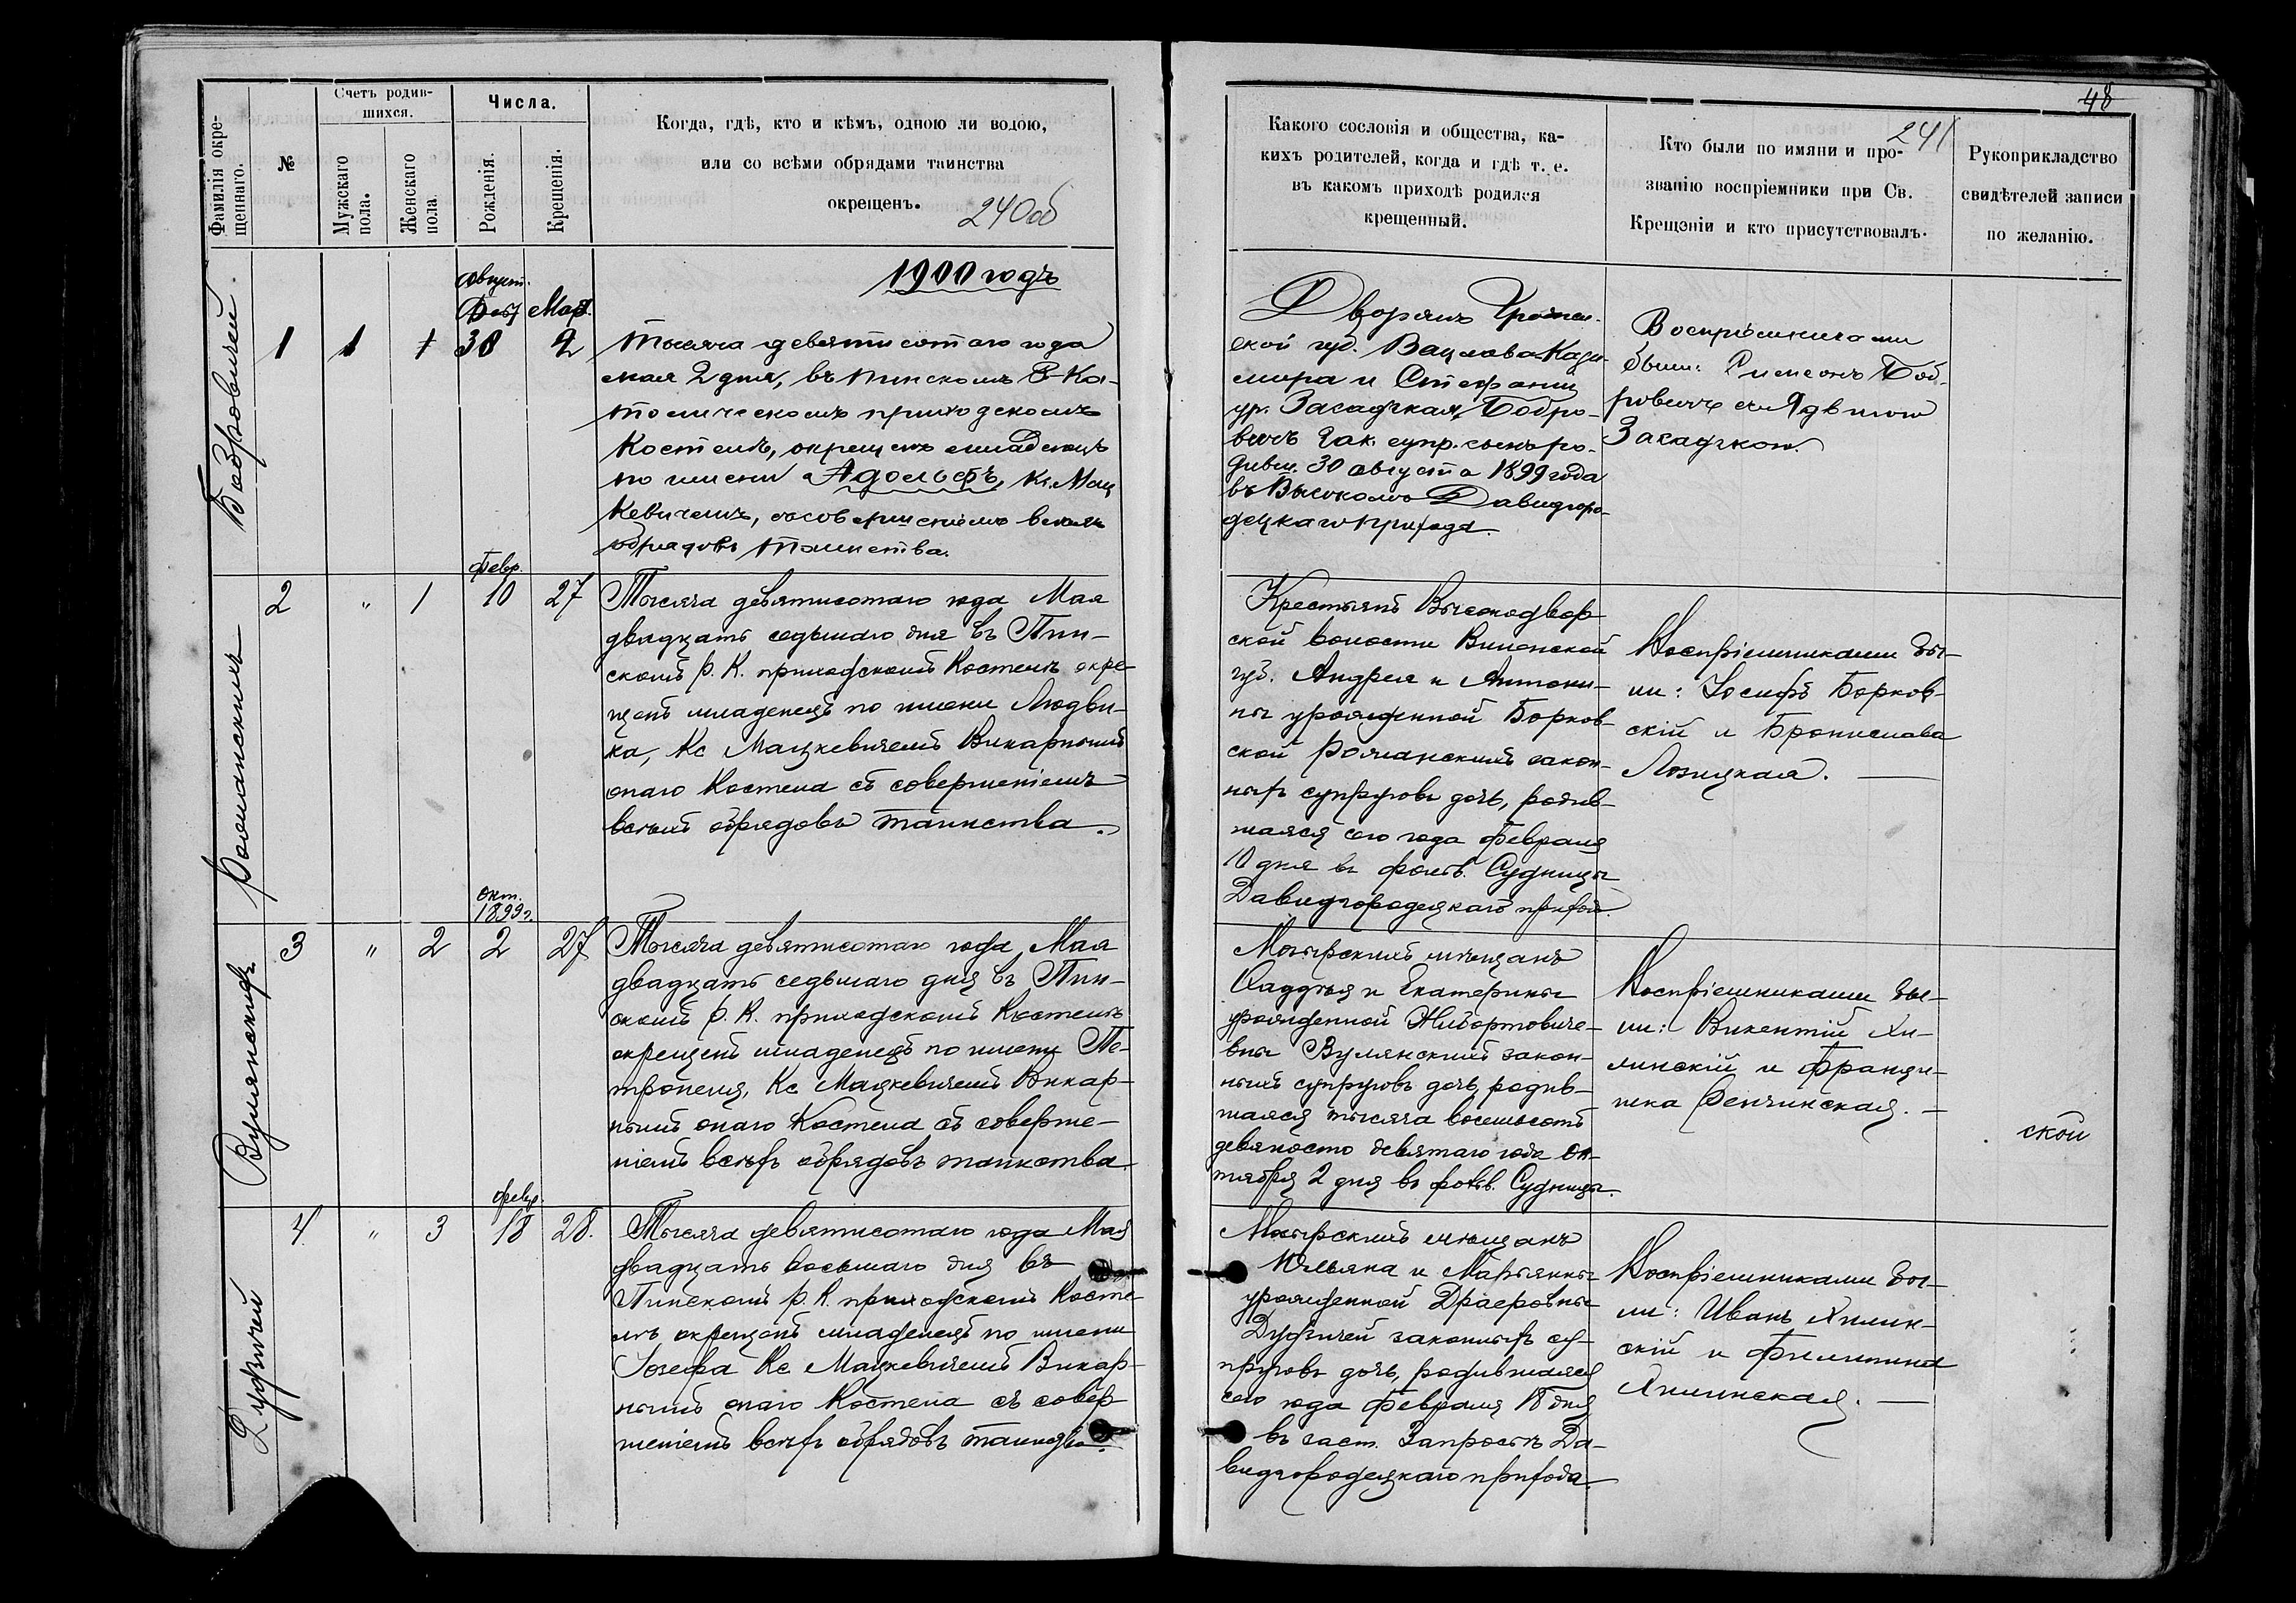 Фамилія окре-
щеннаго.
№
Счетъ родив-
шихся.
Мужскаго
пола.
Женскаго
пола.
Числа.
Рожденія.
Крещенія.
Когда, гдѣ, кто и кѣмъ, одною ли водою,
или со всѣми обрядами таинства
окрещенъ.
240об
1900 годъ
Бобровичей
1
1
Август.
30
Мая
2
Тысяча девятисотаго года
мая 2 дня, въ Пинскомъ Р-Ка-
толическомъ приходскомъ
Костелѣ, окрещенъ младенецъ
по имени Адольфъ, Кс. Мац
кевичемъ, съ совершеніемъ всѣхъ
обрядовъ Таинства.
Романскихъ
2
"
1
Февр.
10
27
Тысяча девятисотаго года Мая
двадцать седьмаго дня въ Пин-
скомъ Р. К. приходскомъ Костелѣ окре-
щенъ младенецъ по имени Людви-
ка, Кс Мацкевичемъ Викарнымъ
онаго Костела съ совершеніемъ
всѣхъ обрядовъ таинства.
Вулянскихъ
3
"
2
окт.
1899г.
2
27
Тысяча девятисотаго года Мая
двадцать седьмаго дня въ Пин-
скомъ Р. К. приходскомъ Костелѣ
окрещенъ младенецъ по имени Пе-
тронеля, Кс Мацкевичемъ Викар-
нымъ онаго Костела съ соверше-
ніемъ всѣхъ обрядовъ таинства
4
"
3
февр.
18
28.
Тысяча девятисотаго года Мая
двадцать восьмаго дня въ
Пинскомъ Р. К. приходскомъ Косте
лѣ окрещенъ младенецъ по имени
Іозефа Кс Мацкевичемъ Викар-
нымъ онаго Костела съ совер
шеніемъ всѣхъ обрядовъ таинства.
48
241
Какого сословія и общества, ка-
кихъ родителей, когда и гдѣ т. е.
въ какомъ приходѣ родился
крещенный.
Кто были по имяни и про-
званію воспріемники при Св.
Крещеніи и кто присутствовалъ.
Рукоприкладство
свидѣтелей записи
по желанію.
Дворянъ
ской губ. Вацлава-Кази-
мира и Стефаніи
ур. Засадзкая, Бобро-
вичъ зак. супр. сынъ ро-
дивш. 30 августа 1899 года
въ Высокомъ Давидгоро-
децкаго прихода.
Воспріемниками
были: Симеонъ Боб-
ровичъ съ Ядвигою
Засадзкою.
Крестьянъ Высокодвор
ской волости Виленской
губ. Андрея и Антони-
ны урожденной Борков-
ской Романскихъ закон-
ныхъ супруговъ дочь, родив-
шаяся сего года Февраля
10 дня въ фольв. Судницы
Давидгородецкаго приход.
Воспріемниками бы-
ли: Іосифъ Борков-
скій и Бронислава
Лозицкая.
Мозырскихъ мѣщанъ
Фаддѣя и Екатерины
урожденной Жибортовиче-
вны Вулянскихъ закон-
ныхъ супруговъ дочь, родив-
шаяся тысяча восемьсотъ
девяносто девятаго года Ок-
тября 2 дня въ фольв. Судницы.
Воспріемниками бы-
ли: Викентій Хи-
линскій и Франци-
шка
ской
Мозырскихъ мѣщанъ
Юльяна и Марьянны
урожденной
законныхъ су-
пруговъ дочь, родившаяся
сего года Февраля 18 дня
въ заст. Да-
видгородецкаго прихода.
Воспріемниками бы-
ли: Иванъ Хилин-
скій и Филипина
Хилинская.